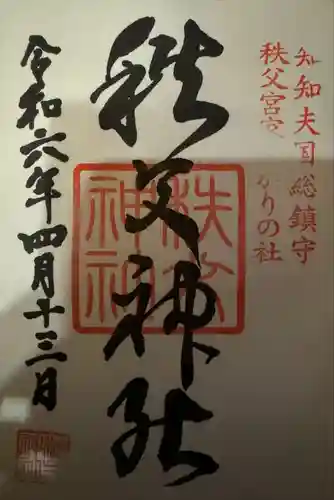 知知夫国総鎮守
秩父宮家ゆかりの社
秩父神社
秩父
神社
令和六年四月十三日